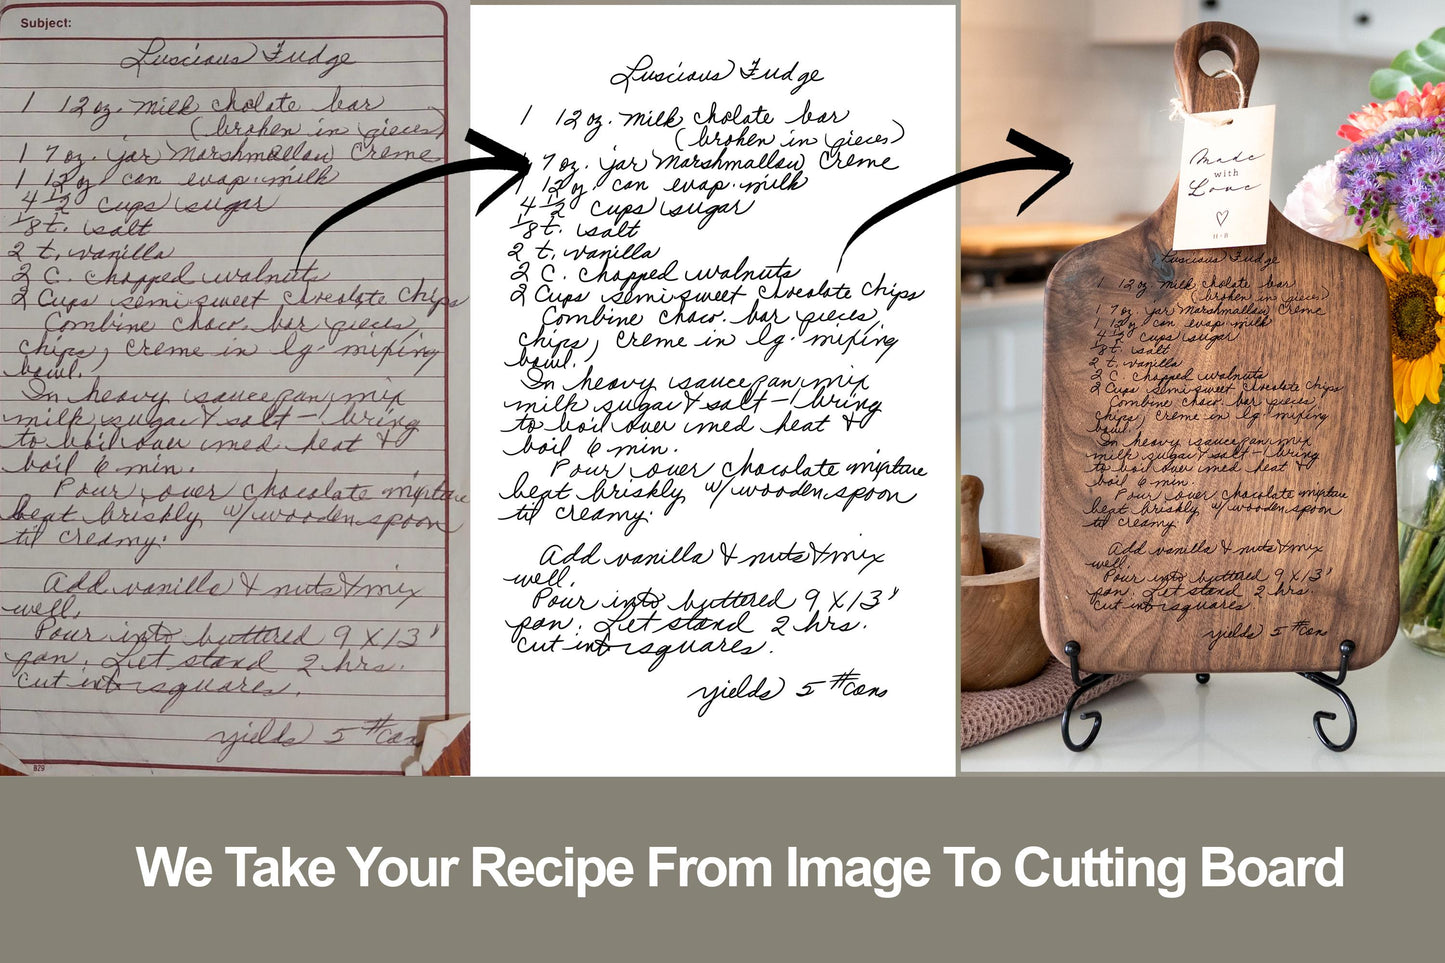 Subject:
Luscious Fudge
1 12 oz. milk cholate bar
(broken in pieces)
1 7 oz. jar Marshmallow Creme
1 12 oz can evap. milk
4 1/2 cups sugar
1/8 t. salt
2 t. vanilla
2 C. chopped walnuts
2 Cups semi sweet chocolate chips
Combine choco. bar pieces,
chips, creme in lg. mixing
bowl.
In heavy saucepan mix
milk sugar & salt - bring
to boil over med heat &
boil 6 min.
Pour over chocolate mixture
beat briskly w/ wooden spoon
til creamy.
Add vanilla & nuts & mix
well.
Pour into buttered 9 X 13"
pan. Let stand 2 hrs.
cut into squares.
yields 5 #
B29
Luscious Fudge
1 12 oz. milk cholate bar
(broken in pieces)
1 7 oz. jar Marshmallow Creme
1 12 oz can evap. milk
4 1/2 cups sugar
1/8 t. salt
2 t. vanilla
2 C. chopped walnuts
2 Cups semi sweet chocolate chips
Combine choco. bar pieces,
chips, creme in lg. mixing
bowl.
In heavy saucepan mix
milk sugar & salt - bring
to boil over med heat &
boil 6 min.
Pour over chocolate mixture
beat briskly w/ wooden spoon
til creamy.
Add vanilla & nuts & mix
well.
Pour into buttered 9 X 13"
pan. Let stand 2 hrs.
cut into squares.
yields 5 #
Made
with
Love
H·B
Luscious Fudge
1 12 oz. milk cholate bar
(broken in pieces)
1 7 oz. jar Marshmallow Creme
1 12 oz can evap. milk
4 1/2 cups sugar
1/8 t. salt
2 t. vanilla
2 C. chopped walnuts
2 Cups semi sweet chocolate chips
Combine choco. bar pieces,
chips, creme in lg. mixing
bowl.
In heavy saucepan mix
milk sugar & salt - bring
to boil over med heat &
boil 6 min.
Pour over chocolate mixture
beat briskly w/ wooden spoon
til creamy.
Add vanilla & nuts & mix
well.
Pour into buttered 9 X 13"
pan. Let stand 2 hrs.
cut into squares.
yields 5 #
We Take Your Recipe From Image To Cutting Board